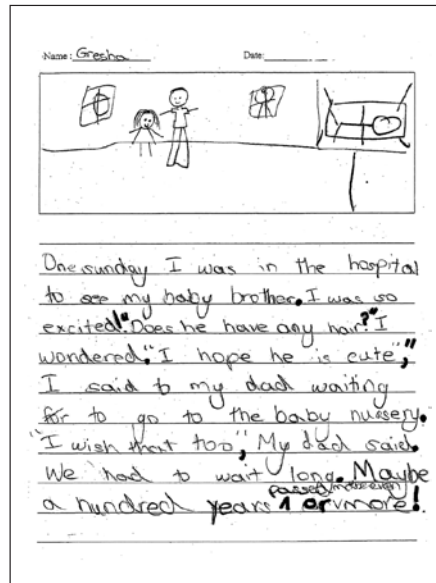 Name: Gresha Date:
One sunday I was in the hospital
to see my baby brother. I was so
excited!" Does he have any hair?" I
wondered. "I hope he is cute","
I said to my dad waiting
for to go to the baby nursery.
"I wish that too", My dad said.
We had to wait long. Maybe
passed
a hundred years or more!